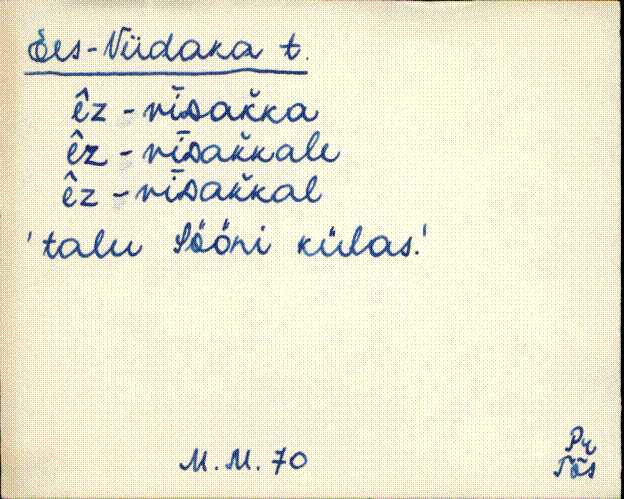 Ees-Viidaka t.
êz - vīsak̆ka
êz - vīsak̆kale
êz - vīsak̆kal
'talu Sõõni külas.'
M. M. 70
Pä
Tõs